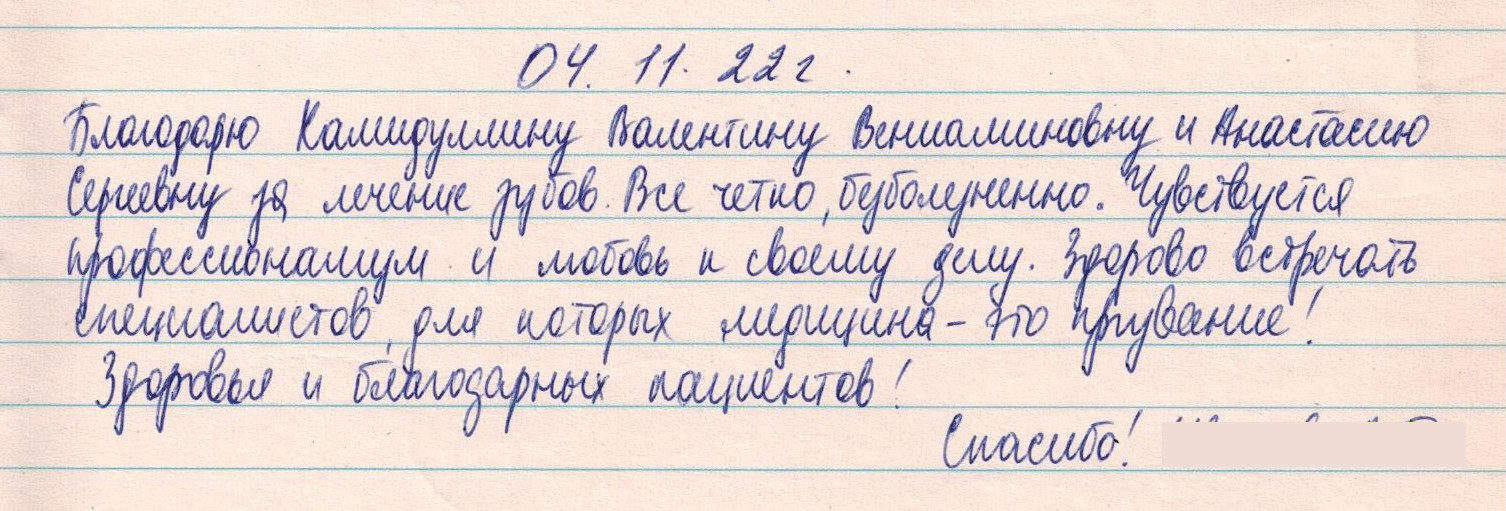 04. 11. 22 г.
Благодарю Хамидуллину Валентину Вениаминовну и Анастасию
Сергеевну за лечение зубов. Все четко, безболезненно. Чувствуется
профессионализм и любовь к своему делу. Здорово встречать
специалистов, для которых медицина – это призвание!
Здоровья и благодарных пациентов!
Спасибо!